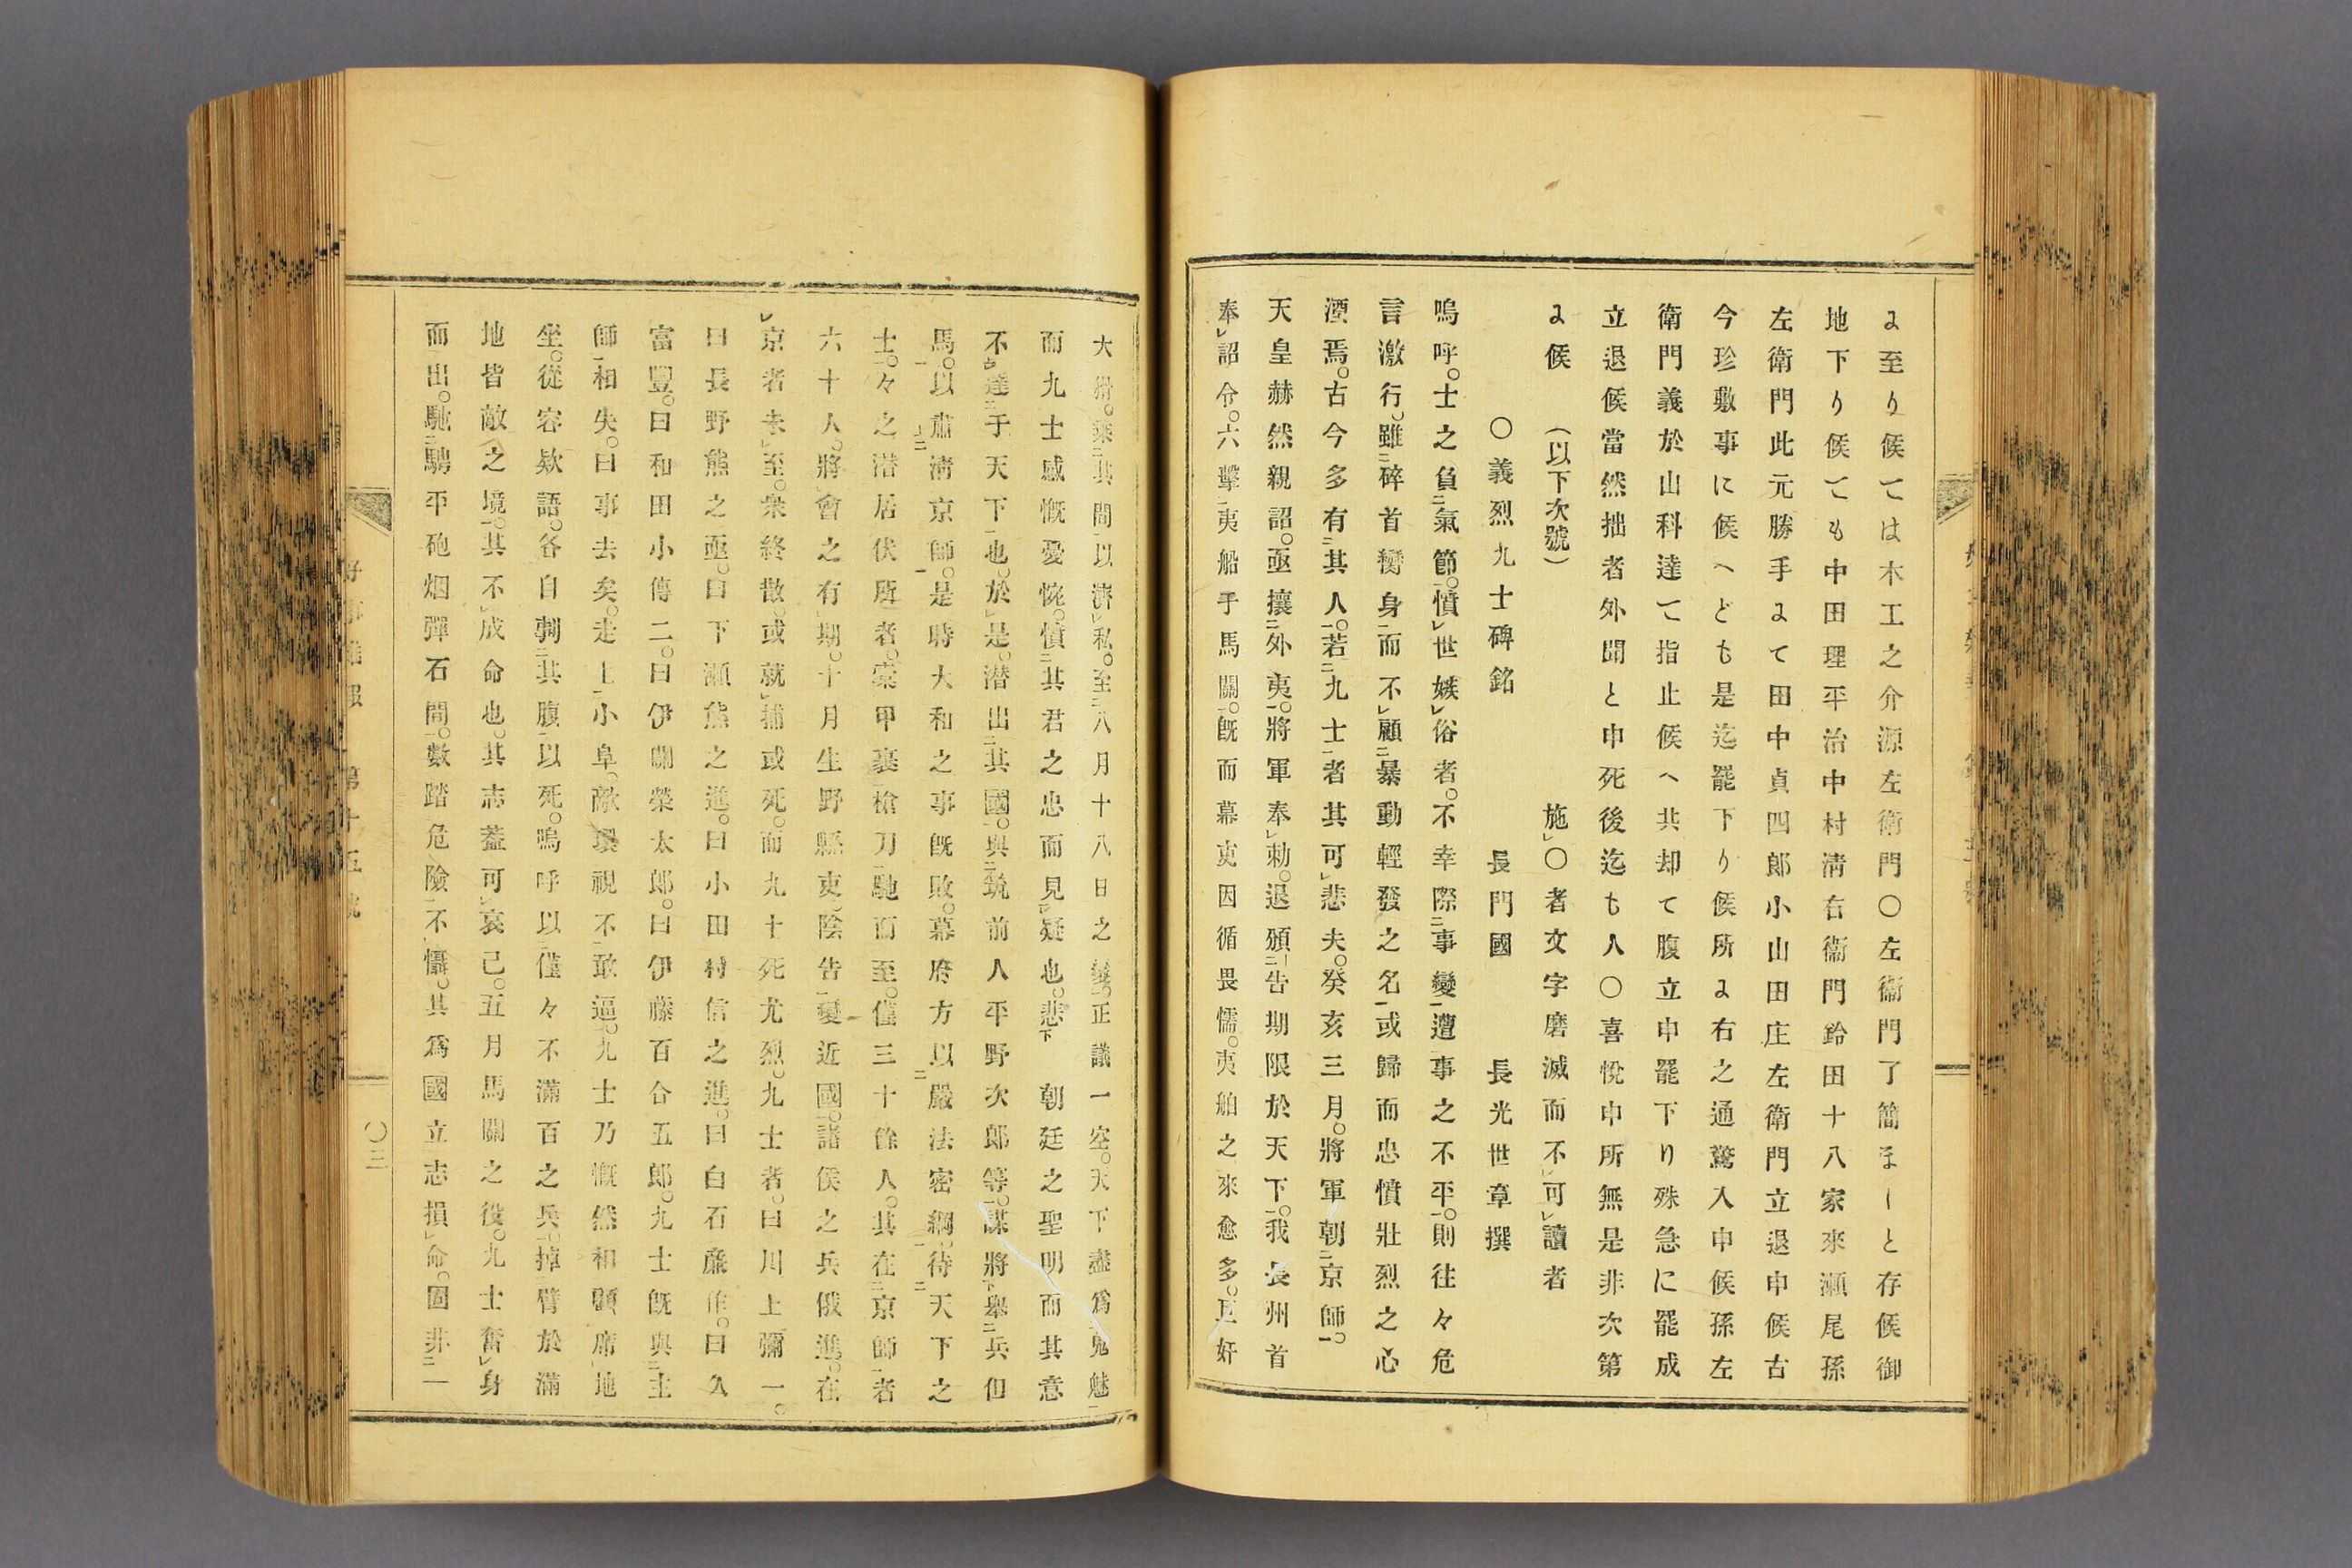 ʑ至り候ては木工之介源左衛門〇左衞門了簡ましと存候御
地下り候ても中田理平治中村淸右衞門鈴田十八家來瀬尾孫
左衛門此元勝手ʑて田中貞四郎小山田庄左衛門立退申候古
今珍敷事に候へども是迄罷下り候所ʑ右之通驚入申候孫左
衛門義於山科達て指止候へ共却て腹立申罷下り殊急に罷成
立退候當然拙者外聞と申死後迄も人〇喜悅申所無是非次第
ʑ候 (以下次號) 施レ〇者文字磨滅而不レ可レ讀者
〇義烈九士碑銘 長門國 長光世章撰
嗚呼。士之負二氣節一。憤レ世嫉レ俗者。不幸際二事變一遭事之不平一。則往々危
言激行。雖三碎首衢身一而不レ顧二暴動輕發之名一或歸而忠憤壯烈之心
湮焉。古今多有二其人一。若二九士一者其可レ悲夫。癸亥三月。將軍朝二京師一。
天皇赫然親詔。亟攘二外夷一。將軍奉レ勅。退頒二告期限於天下一。我長州首
奉レ詔令。六擊二夷船手馬關一。旣而幕吏因循畏懦。夷舶之來愈多。且奸
大猾。乘二其間一以濟レ私。至二八月十八日之變一。正議一空。天下盡爲二鬼魅一
而九士感慨憂惋。憤二其君之忠而見レ疑也。悲下朝廷之聖明而其意
不達二于天下一也。於レ是。潜出二其國一。與二筑前人平野次郎等一。謀將下擧二兵但
馬一。以肅二淸京師一。是時大和之事旣敗。幕府方以二嚴法密網一。待二天下之
士一。々之潜居伏所者。槖甲裹二槍刀一馳而至。僅三十餘人。其在二京師一者
六十人。將會之有レ期。十月生野縣吏。陰告二變近國一。諸侯之兵俄進。在
レ京者未レ至。衆終散。或就レ捕或死。而九士死尤烈。九士者。曰川上彌一。
曰長野熊之亟。曰下瀨熊之進。曰小田村信之進。曰白石廉作。曰久
富豐。曰和田小傳二。曰伊關榮太郎。曰伊藤百合五郎。九士旣與二主
師一相失。曰事去矣。走上二小阜一。敵環視不二敢逼一。九士乃慨然相顧。席レ地
坐。從容欵語。各自刺二其腹一以死。嗚呼以二僅々不滿百之兵一。掉臂於滿
地皆敵之境一。其不レ成命也。其志蓋可レ哀已。五月馬關之役。九士奮レ身
而出。馳二騁平砲烟彈石間一。數踏危險一不レ懾。其爲國立志損レ命。固非二一
好事雜報 第十五號
〇三